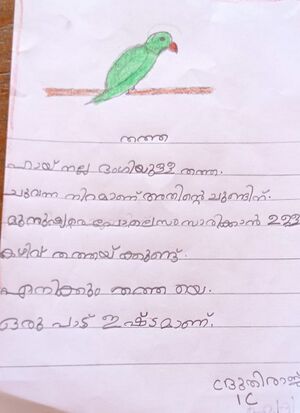 തത്ത
ഹായ് നല്ല ഭംഗിയുള്ള തത്ത.
ചുവന്ന നിറമാണ് അതിന്റെ ചുണ്ടിന്.
മുനുഷ്യരെ പോലെ സംസാരിക്കാൻ ഉള്ള
കഴിവ് തത്തയ്ക്കുണ്ട്.
എനിക്കും തത്ത യെ.
ഒരു പാട് ഇഷ്ടമാണ്.
1C